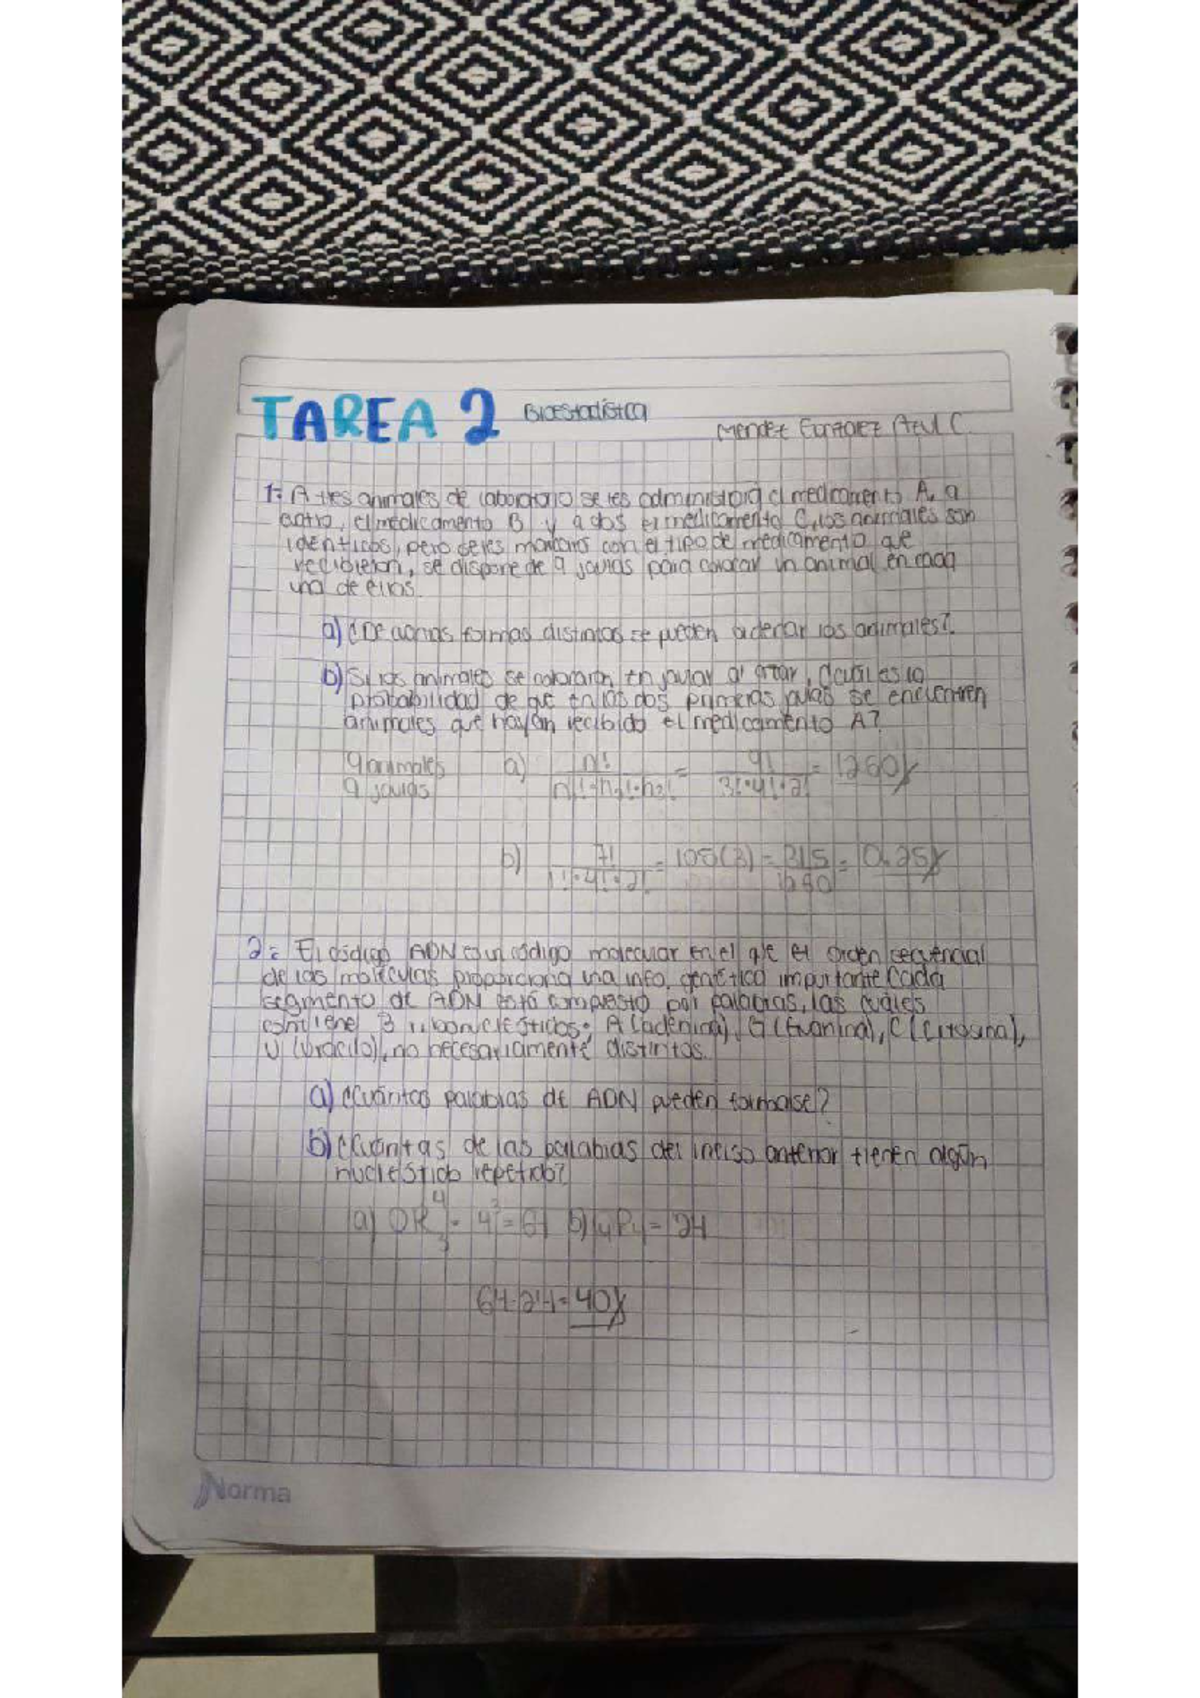 TAREA 2 Bioestadística
Mendez Azul C.
1: A tres animales de laboratorio se les administrará el medicamento A, a
cuatro, el medicamento B y a dos el medicamento C, los animales son
identicos, pero se les marcara con el tipo de medicamento que
recibieron, se dispone de 9 jaulas para colocar un animal en cada
una de ellas.
a) ¿De cuantas formas distintas se pueden ordenar los animales?
b) Si los animales se colocaran en jaulas al azar, ¿cuál es la
probabilidad de que en las dos primeras jaulas se encuentren
animales que hayan recibido el medicamento A?
9 animales a) n! / n1!·n2!·n3! = 9! / 3!·4!·2! = 1260
9 jaulas
b) 7! / 1!·4!·2! = 105(3) = 315 / 1260 = 0.25
2: El código ADN es un código molecular en el que el orden secuencial
de las moléculas proporciona una info. genética importante Cada
segmento de ADN está compuesto por palabras, las cuales
contiene 3 A (adenina), G (Guanina), C (Citosina),
U (Uracilo), no necesariamente distintos.
a) ¿Cuántas palabras de ADN pueden formarse?
b) ¿Cuántas de las palabras del inciso anterior tienen algún
nucleótido repetido?
a) OR 4 3 = 4³ = 64 b) = 24
64-24=40
Norma